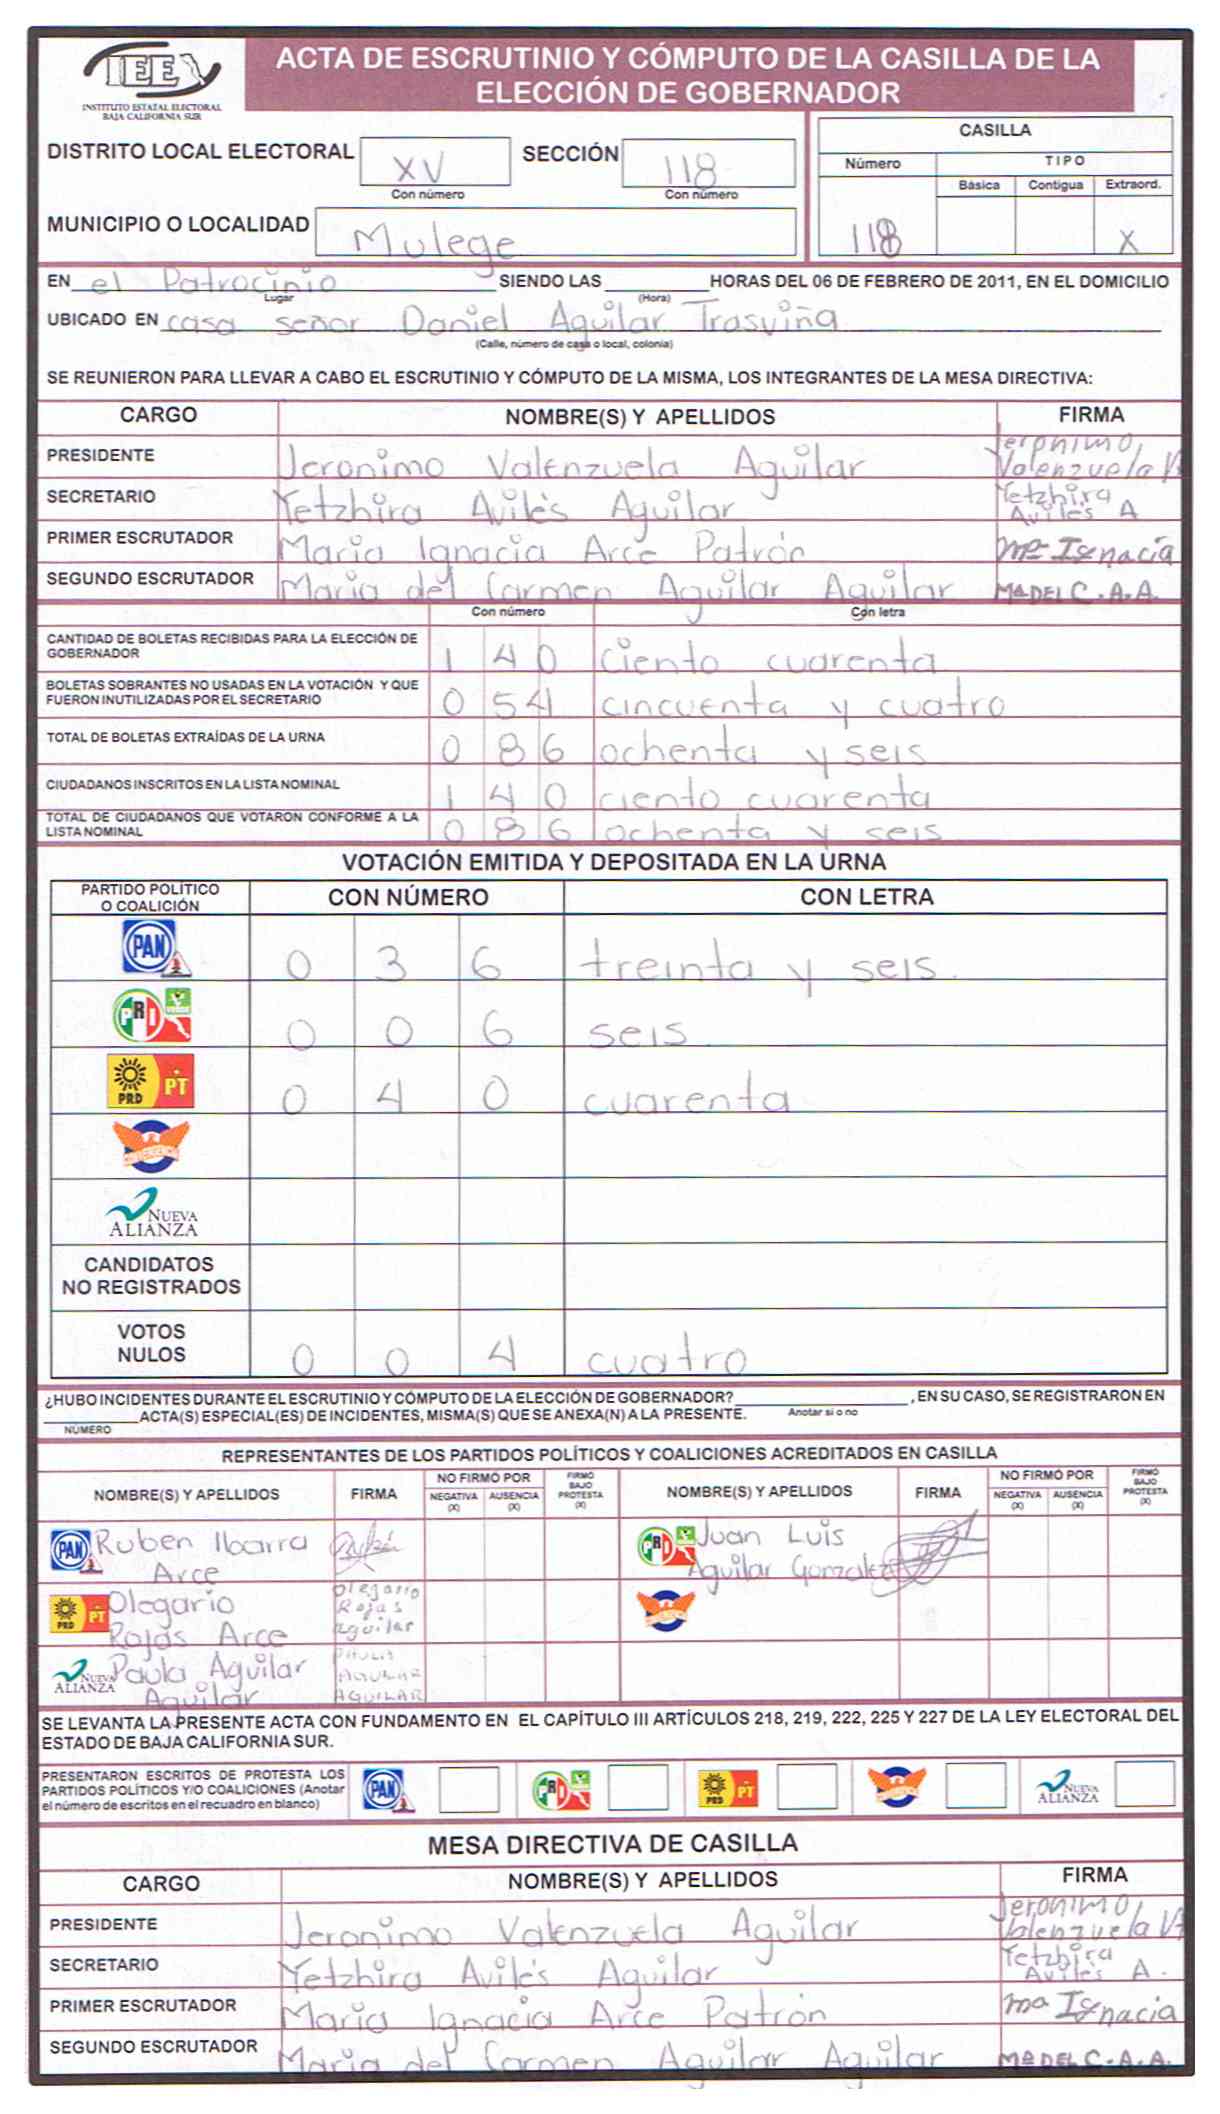 IEE
INSTITUTO ESTATAL ELECTORAL
BAJA CALIFORNIA SUR
ACTA DE ESCRUTINIO Y CÓMPUTO DE LA CASILLA DE LA
ELECCIÓN DE GOBERNADOR
DISTRITO LOCAL ELECTORAL XV SECCIÓN 118
Con número Con número
CASILLA
Número TIPO
Básica Contigua Extraord.
118 X
MUNICIPIO O LOCALIDAD Mulege
EN el Patrocinio SIENDO LAS HORAS DEL 06 DE FEBRERO DE 2011, EN EL DOMICILIO
Lugar (Hora)
UBICADO EN casa señor Daniel Aguilar Trasviña
(Calle, número de casa o local, colonia)
SE REUNIERON PARA LLEVAR A CABO EL ESCRUTINIO Y CÓMPUTO DE LA MISMA, LOS INTEGRANTES DE LA MESA DIRECTIVA:
CARGO NOMBRE(S) Y APELLIDOS FIRMA
PRESIDENTE Jeronimo Valenzuela Aguilar Jeronimo Valenzuela
SECRETARIO Yetzhira Avilés Aguilar Yetzhira Aviles A
PRIMER ESCRUTADOR Maria Ignacia Arce Patrón Mª Ignacia
SEGUNDO ESCRUTADOR Maria del Carmen Aguilar Aguilar Mª DEL C.A.A.
Con número Con letra
CANTIDAD DE BOLETAS RECIBIDAS PARA LA ELECCIÓN DE
GOBERNADOR 1 4 0 ciento cuarenta
BOLETAS SOBRANTES NO USADAS EN LA VOTACIÓN Y QUE
FUERON INUTILIZADAS POR EL SECRETARIO 0 5 4 cincuenta y cuatro
TOTAL DE BOLETAS EXTRAÍDAS DE LA URNA 0 8 6 ochenta y seis
CIUDADANOS INSCRITOS EN LA LISTA NOMINAL 1 4 0 ciento cuarenta
TOTAL DE CIUDADANOS QUE VOTARON CONFORME A LA
LISTA NOMINAL 0 8 6 ochenta y seis
VOTACIÓN EMITIDA Y DEPOSITADA EN LA URNA
PARTIDO POLÍTICO
O COALICIÓN CON NÚMERO CON LETRA
PAN 0 3 6 treinta y seis.
PRI VERDE 0 0 6 seis
PRD PT 0 4 0 cuarenta
CONVERGENCIA
NUEVA
ALIANZA
CANDIDATOS
NO REGISTRADOS
VOTOS
NULOS 0 0 4 cuatro
¿HUBO INCIDENTES DURANTE EL ESCRUTINIO Y CÓMPUTO DE LA ELECCIÓN DE GOBERNADOR? , EN SU CASO, SE REGISTRARON EN
ACTA(S) ESPECIAL(ES) DE INCIDENTES, MISMA(S) QUE SE ANEXA(N) A LA PRESENTE. Anotar si o no
NÚMERO
REPRESENTANTES DE LOS PARTIDOS POLÍTICOS Y COALICIONES ACREDITADOS EN CASILLA
NOMBRE(S) Y APELLIDOS FIRMA NO FIRMÓ POR NEGATIVA (X) AUSENCIA (X) FIRMÓ BAJO PROTESTA (X) NOMBRE(S) Y APELLIDOS FIRMA NO FIRMÓ POR NEGATIVA (X) AUSENCIA (X) FIRMÓ BAJO PROTESTA (X)
PAN Ruben Ibarra Arce PRI Juan Luis Aguilar Gonzalez
PRD PT Olegario Rojas Arce Olegario Rojas Aguilar
NUEVA ALIANZA Paula Aguilar Aguilar PAULA AGUILAR AGUILAR
SE LEVANTA LA PRESENTE ACTA CON FUNDAMENTO EN EL CAPÍTULO III ARTÍCULOS 218, 219, 222, 225 Y 227 DE LA LEY ELECTORAL DEL
ESTADO DE BAJA CALIFORNIA SUR.
PRESENTARON ESCRITOS DE PROTESTA LOS
PARTIDOS POLÍTICOS Y/O COALICIONES (Anotar
el número de escritos en el recuadro en blanco) PAN PRI PRD PT NUEVA ALIANZA
MESA DIRECTIVA DE CASILLA
CARGO NOMBRE(S) Y APELLIDOS FIRMA
PRESIDENTE Jeronimo Valenzuela Aguilar Jeronimo Valenzuela
SECRETARIO Yetzhira Avilés Aguilar Yetzhira Aviles A.
PRIMER ESCRUTADOR Maria Ignacia Arce Patrón Mª Ignacia
SEGUNDO ESCRUTADOR Maria del Carmen Aguilar Aguilar Mª DEL C.A.A.